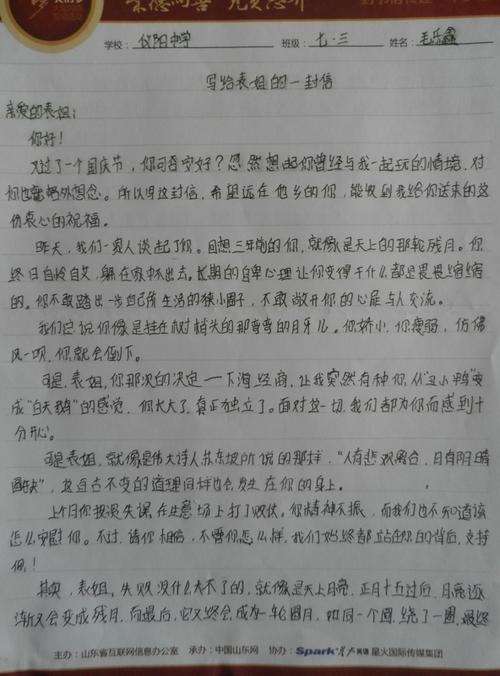 学校：仪阳中学 班级：七·三 姓名：毛乐鑫
写给表姐的一封信
亲爱的表姐：
你好！
又过了一个国庆节，你可否安好？忽然想起你曾经与我一起玩的情境，对
你也格外想念。所以写这封信，希望远在他乡的你，能收到我给你送来的这
份衷心的祝福。
昨天，我们一家人谈起了你。回想三年前的你，就像是天上的那轮残月。你
终日自怜自艾，躲在家中不出去。长期的自卑心理让你变得干什么都是畏畏缩缩
的。你不敢踏出一步自己所生活的狭小圈子，不敢敞开你的心扉与人交流。
我们总说你像是挂在树梢头的那弯弯的月牙儿。你娇小，你瘦弱，仿佛
风一吹，你就会倒下。
可是，表姐，你那次的决定—下海经商，让我突然有种你从“丑小鸭”变
成“白天鹅”的感觉，你长大了，真正独立了。面对这一切，我们都为你而感到十
分开心。
可是表姐，就像是伟大诗人苏东坡所说的那样，“人有悲欢离合，月有阴晴
圆缺”，这亘古不变的道理同样也会发生在你的身上。
上个月你投资失误，在生意场上打了败仗。你精神不振，而我们也不知道该
怎么安慰你。不过，请你相信，不管你怎么样，我们始终都站在你的背后，支持
你！
其实，表姐，失败没什么大不了的，就像是天上月亮，正月十五过后，月亮逐
渐又会变成残月，而最后，它又终会成为一轮圆月，如同一个圈，绕了一圈，最终
主办：山东省互联网信息办公室 承办：中国山东网 协办：Spark 星火英语 星火国际传媒集团